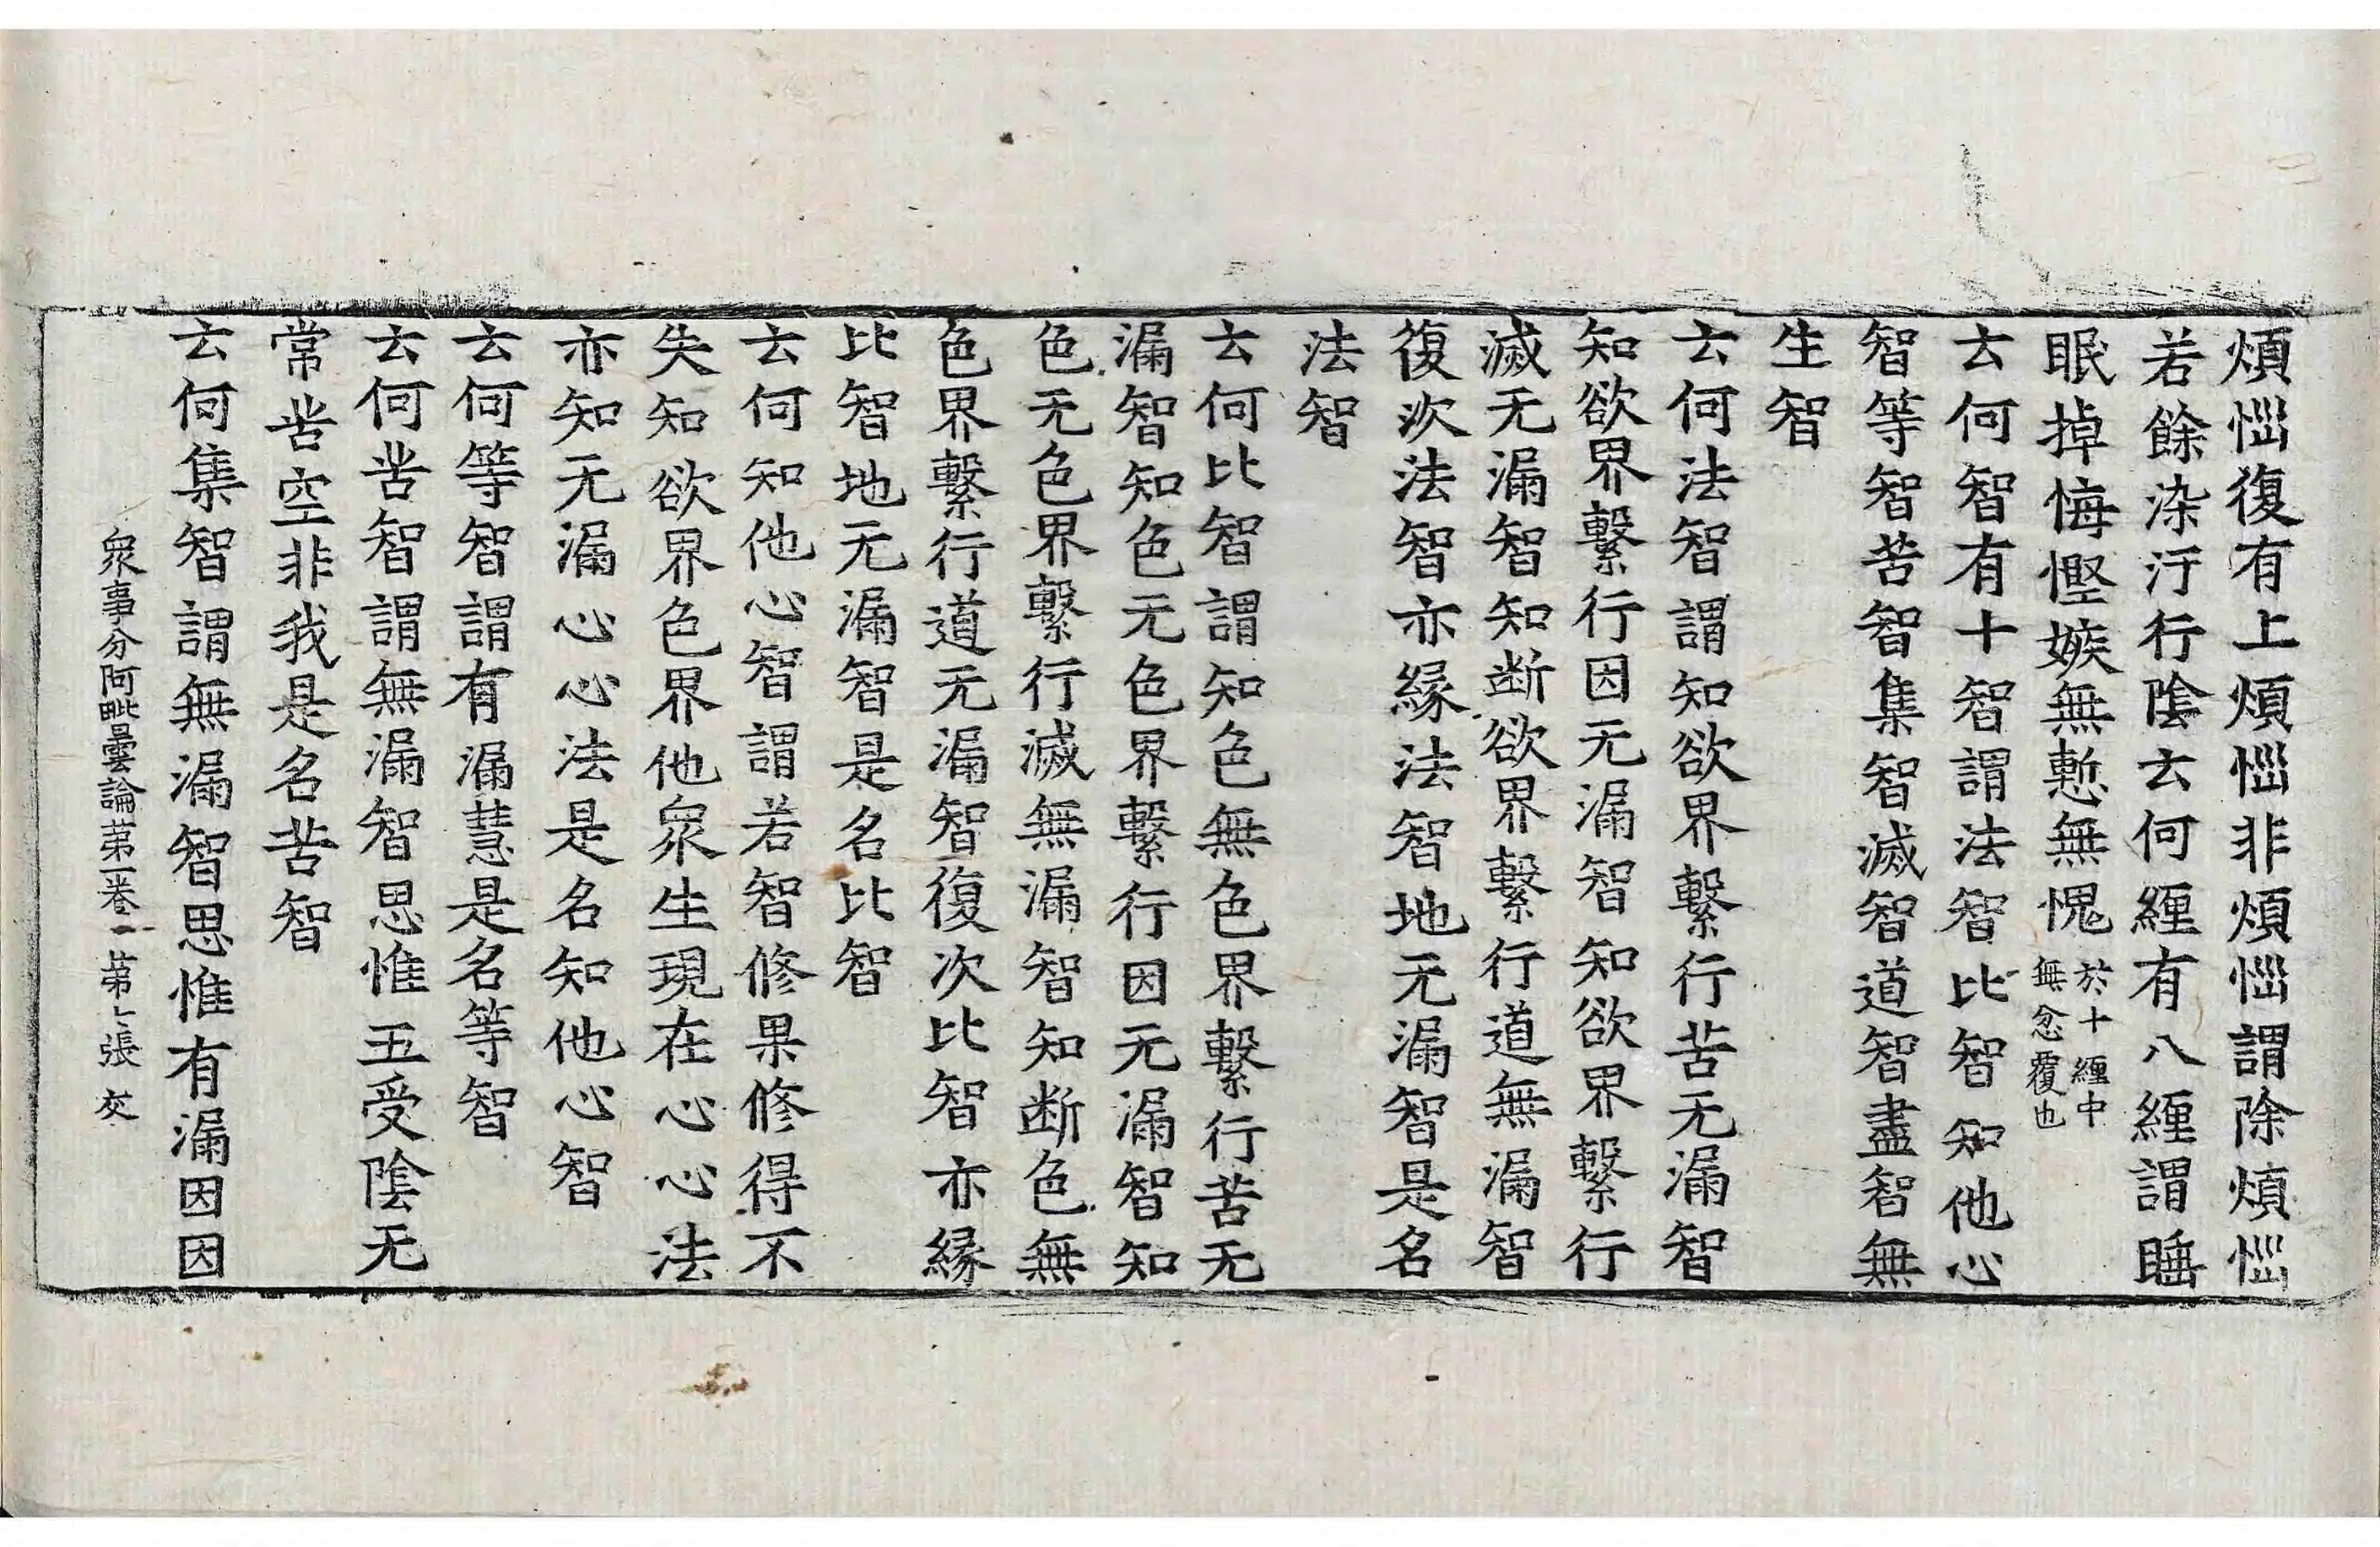 煩惱復有上煩惱非煩惱謂除煩惱
若餘染汙行陰云何纏有八纏謂睡
眠掉悔慳嫉無慙無愧於十纏中無忿覆也
云何智有十智謂法智比智知他心
智等智苦智集智滅智道智盡智無
生智
云何法智謂知欲界繫行苦无漏智
知欲界繫行因无漏智知欲界繫行
滅无漏智知断欲界繫行道無漏智
復次法智亦縁法智地无漏智是名
法智
云何比智謂知色無色界繫行苦无
漏智知色无色界繫行因无漏智知
色无色界繫行滅無漏智知断色無
色界繫行道无漏智復次比智亦縁
比智地无漏智是名比智
云何知他心智謂若智修果修得不
失知欲界色界他眾生現在心心法
亦知无漏心心法是名知他心智
云何等智謂有漏慧是名等智
云何苦智謂無漏智思惟五受陰无
常苦空非我是名苦智
云何集智謂無漏智思惟有漏因因
眾事分阿毗曇論第一卷 第七張 交